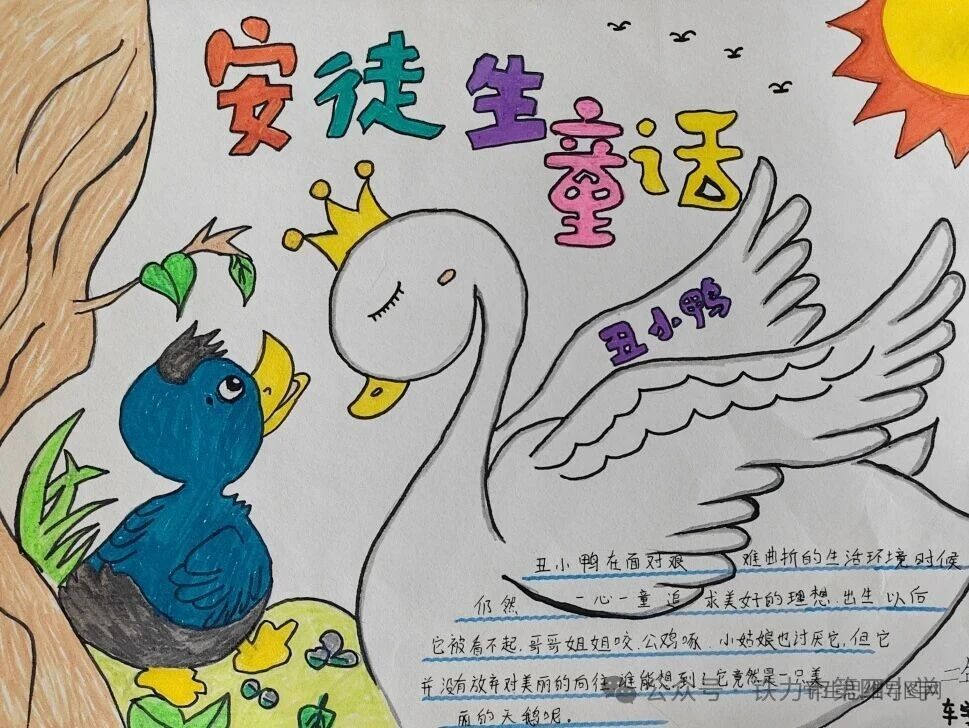 安徒生
童话
丑小鸭
丑小鸭在面对艰 难曲折的生活环境时候
仍然 一心一意 追 求美好的理想.出生以后
它被看不起,哥哥姐姐咬.公鸡啄.小姑娘也讨厌它,但它
并没有放弃对美丽的向往.谁能想到 它竟然是一只美
丽的天鹅呢。
公众号